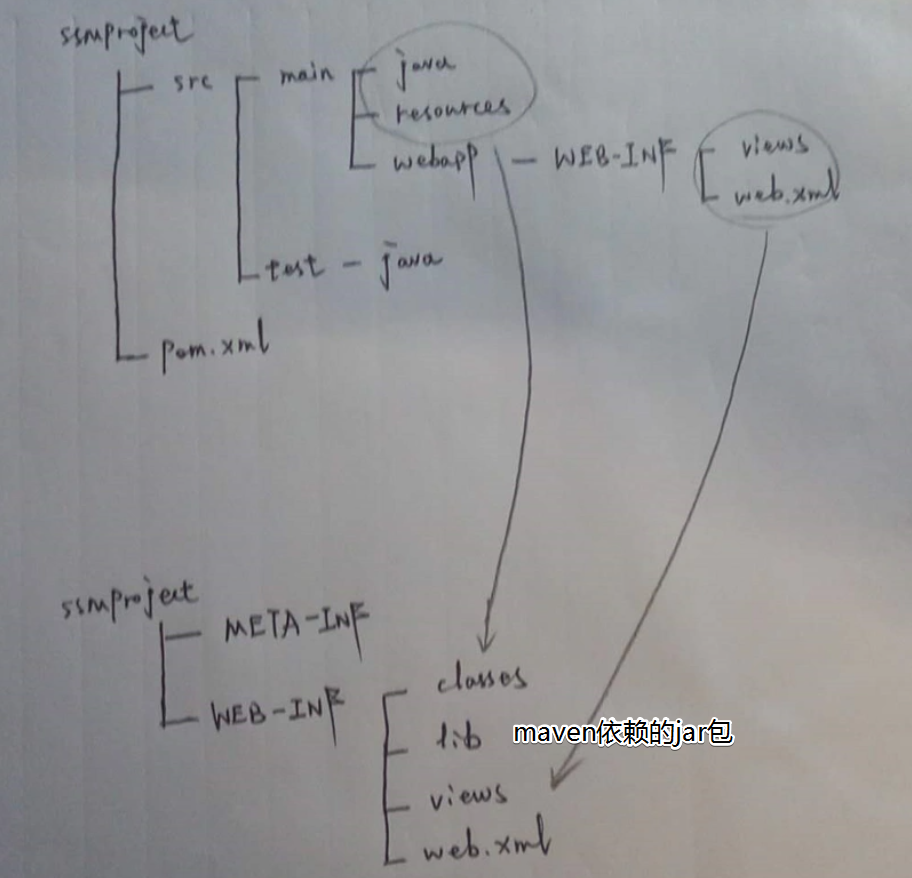 ssmproject
src main java
resources
webapp — WEB-INF views
web.xml
test — java
pom.xml
ssmproject
META-INF
classes
WEB-INF
lib maven依赖的jar包
views
web.xml